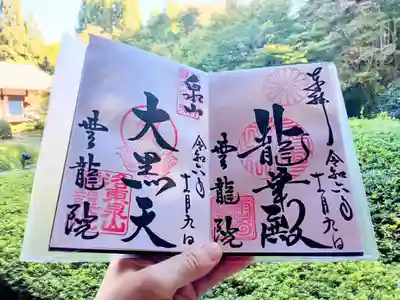 奉拝
龍華殿
令和六年
十一月九日
雲龍院
泉山
大黒天
令和六年
十一月九日
雲龍院